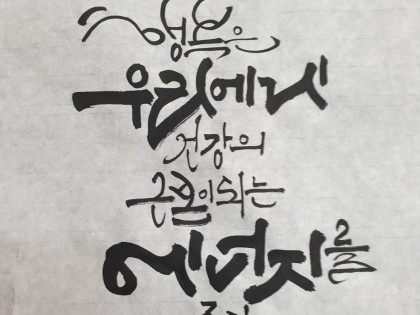 행복은
우리에게
건강의
근본이 되는
에너지를